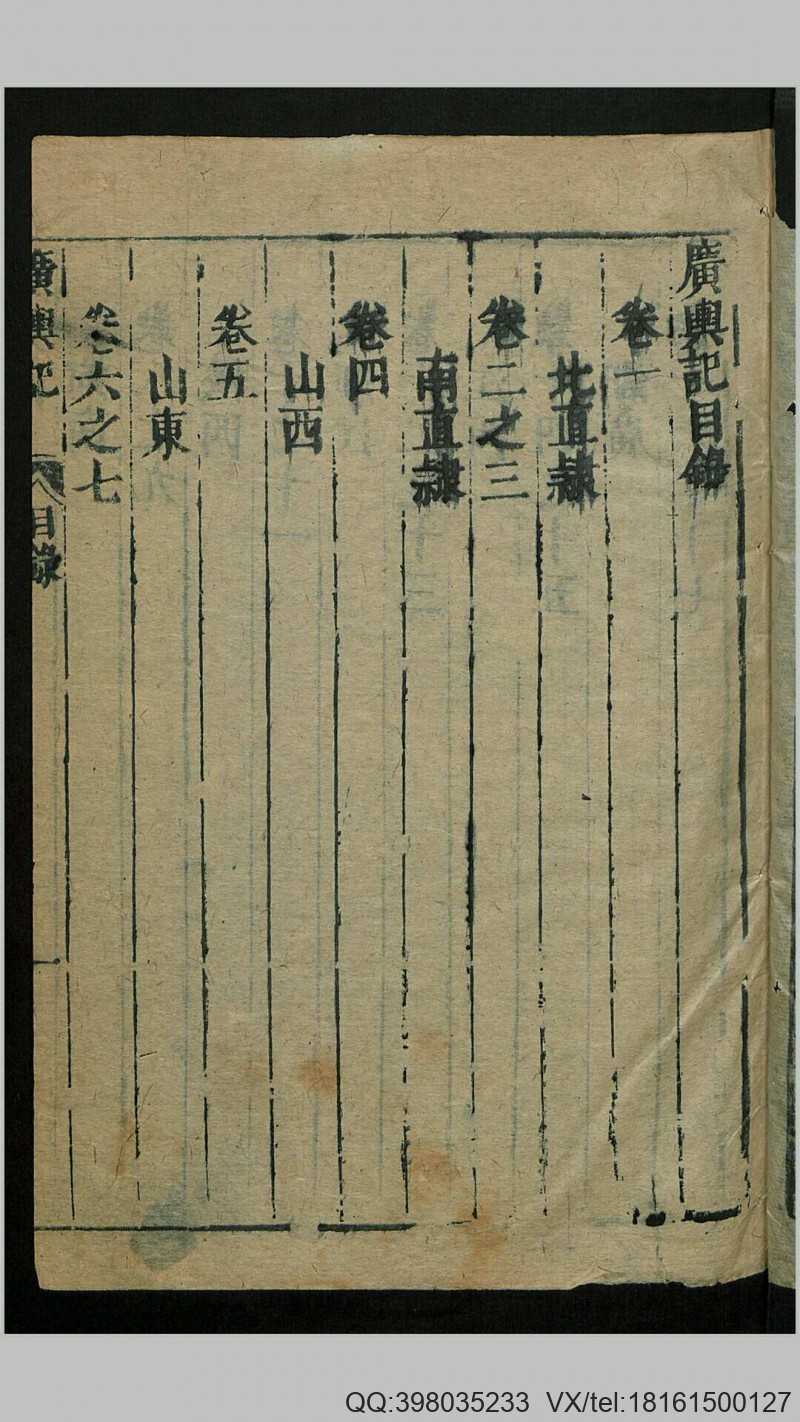 廣輿記目錄
卷一
北直隸
卷二之三
南直隸
卷四
山西
卷五
山東
卷六之七
廣輿記 目錄
QQ:398035233 VX/tel:18161500127